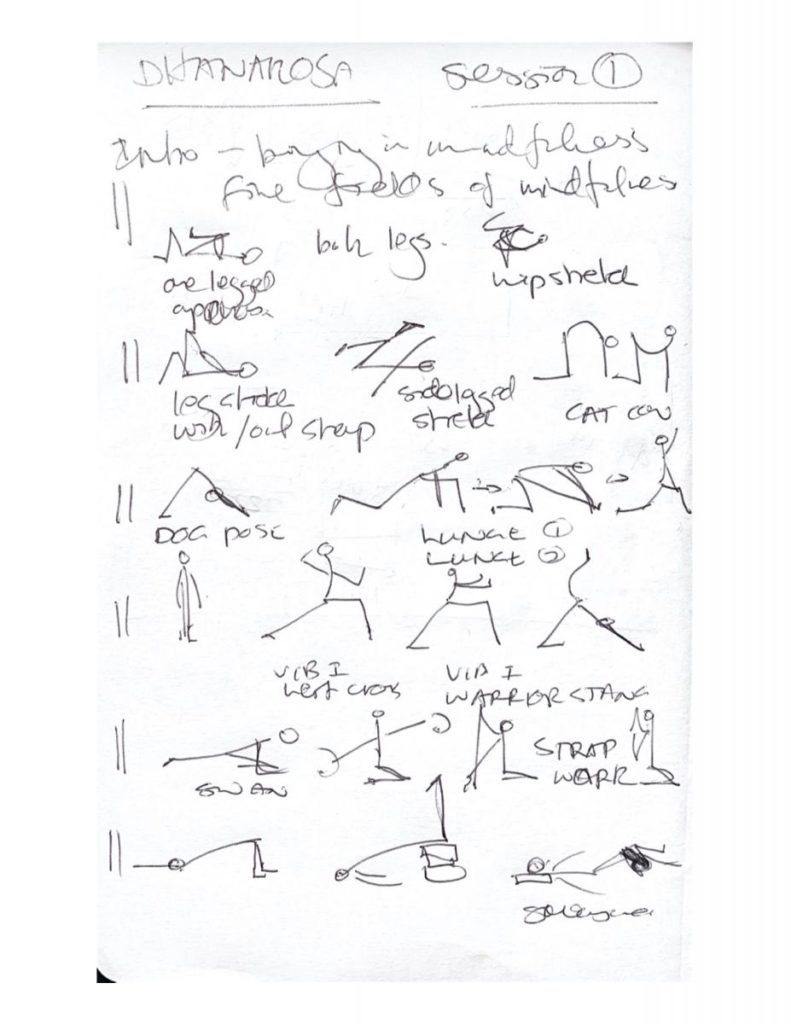 DHANAKOSA session ①
Intro – bringing in mindfulness
five fields of mindfulness
both legs.
one legged
hip stretch
leg stretch
with/out strap
side legged
stretch
CAT COW
DOG POSE
LUNGE ①
LUNGE ②
VIB I
VIB I
WARRIOR STANC
SWAN
STRAP
WORK